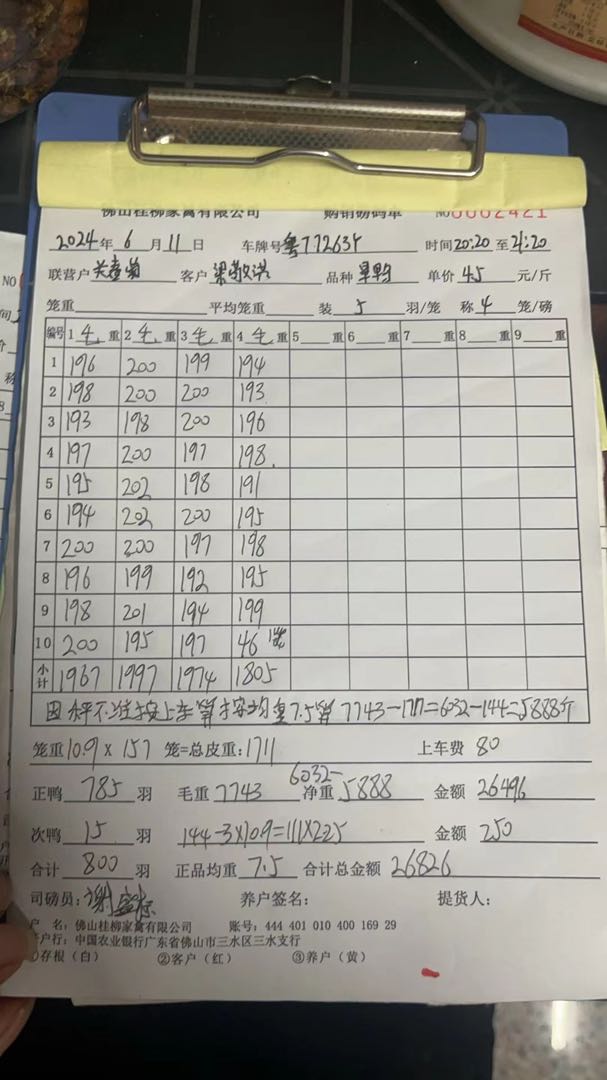 佛山桂柳家禽有限公司 购销磅码单 NO0002421
2024年 6 月 11 日 车牌号 粤 时间 20:20 至 21:20
联营户 客户 品种 单价 4.5 元/斤
笼重 平均笼重 装 5 羽/笼 称 4 笼/磅
编号 1 毛 重 2 毛 重 3 毛 重 4 毛 重 5 重 6 重 7 重 8 重 9 重
1 196 200 199 194
2 198 200 200 193
3 193 198 200 196
4 197 200 197 198
5 195 202 198 191
6 194 202 200 195
7 200 200 197 198
8 196 199 192 195
9 198 201 194 199
10 200 195 197 46
小计 1967 1997 1974 1805
因 不 上车 算 均重7.5算 7743-1711=6032-144=5888斤
笼重 10.9 x 157 笼=总皮重:1711 上车费 80
6032-
正鸭 785 羽 毛重 7743 净重 5888 金额 26496
次鸭 15 羽 144-3x10.9=111x2.25 金额 250
合计 800 羽 正品均重 7.5 合计总金额 26826
司磅员: 养户签名: 提货人:
户 名: 佛山桂柳家禽有限公司 账号: 444 401 010 400 169 29
户行: 中国农业银行广东省佛山市三水区三水支行
①存根（白） ②客户（红） ③养户（黄）